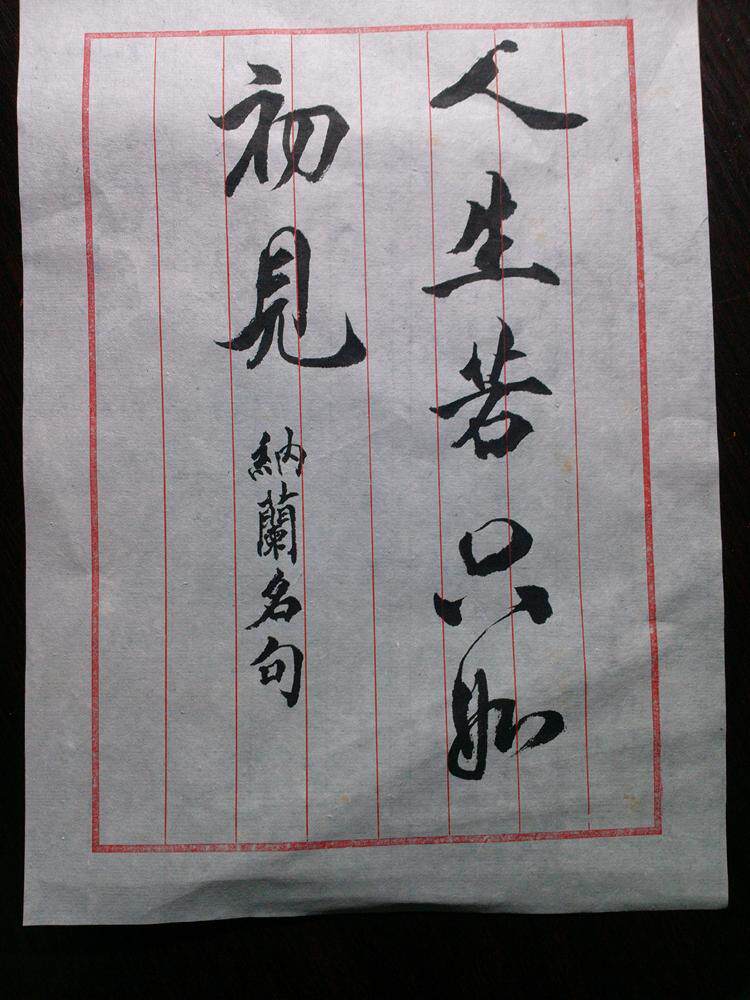 人生若只如
初見
納蘭名句